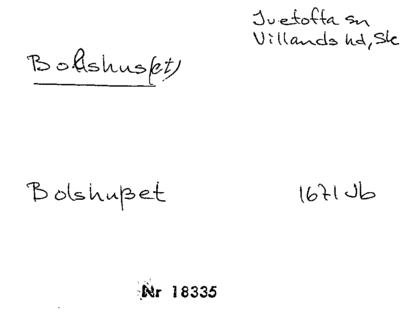 Ivetofta sn
Villands hd, Sk
Bolshus(et)
Bolshußet 1671 Jb
Nr 18335